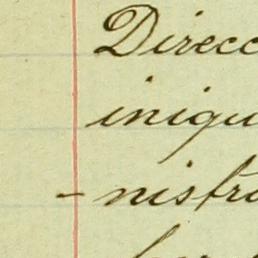 Direcc
iniqu
- nistra